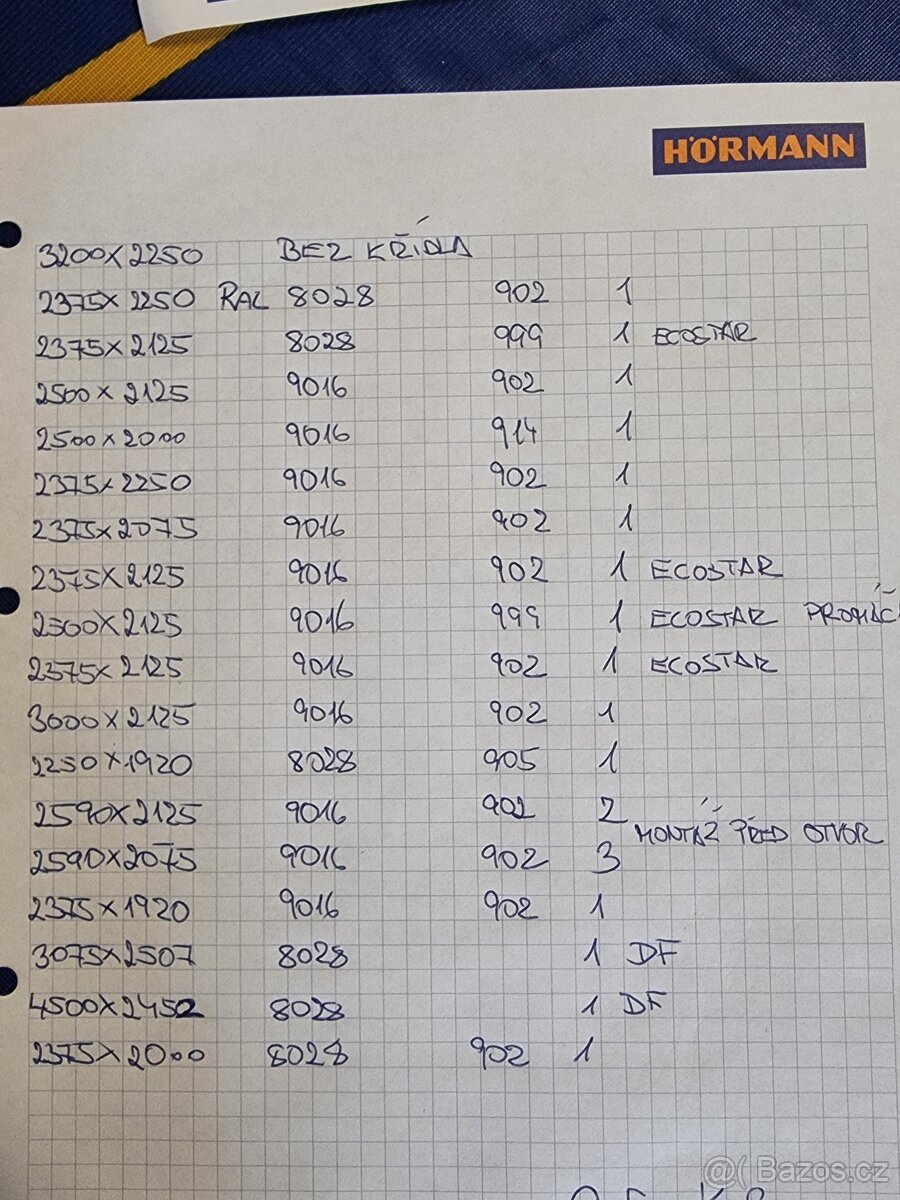 HÖRMANN
3200x2250 BEZ KŘÍDLA
2375x2250 RAL 8028 902 1
2375x2125 8028 999 1 ECOSTAR
2500x2125 9016 902 1
2500x2000 9016 914 1
2375x2250 9016 902 1
2375x2075 9016 902 1
2375x2125 9016 902 1 ECOSTAR
2500x2125 9016 999 1 ECOSTAR PROMÁČ
2375x2125 9016 902 1 ECOSTAR
3000x2125 9016 902 1
2250x1920 8028 905 1
2590x2125 9016 902 2
MONTÁŽ PŘED OTVOR
2590x2075 9016 902 3
2375x1920 9016 902 1
3075x2507 8028 1 DF
4500x2452 8028 1 DF
2375x2000 8028 902 1
@( Bazos.cz